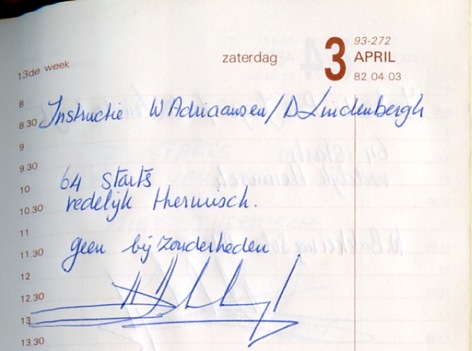 13de week
zaterdag
3
93-272
APRIL
82 04 03
8
8.30 Instructie W Adriaansen / D Lindenbergh
9
9.30
10 64 starts
10.30 redelijk thermisch.
11
11.30 geen bijzonderheden
12
12.30
13
13.30